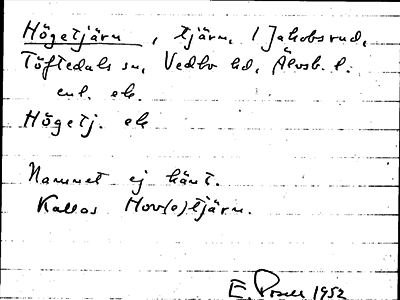 Högetjärn, tjärn, 1 Jakobsrud,
Töftedals sn, Vedbo hd, Älvsb. l.
enl. ek.
Högetj. ek
Namnet ej känt.
Kallas Hov(e)tjärn.
E. 1952